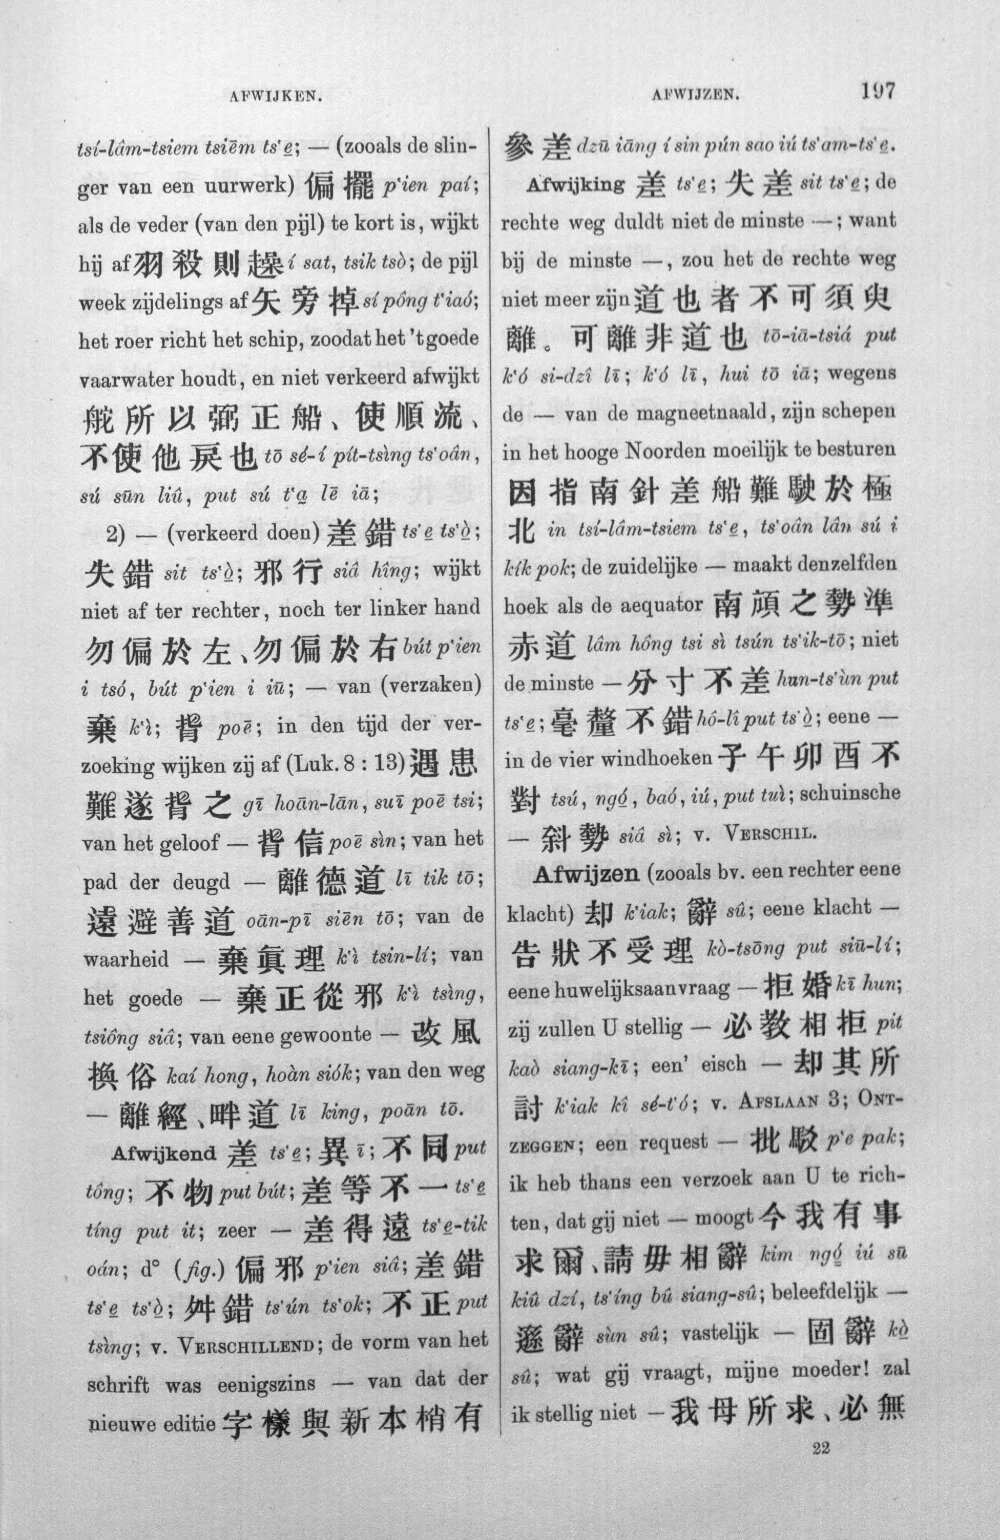 AFWIJKEN.
AFWIJZEN.
197
tsí-lâm-tsiem tsiēm ts‘e̱; — (zooals de slin-
ger van een uurwerk) 偏擺 p‘ien paí;
als de veder (van den pijl) te kort is, wijkt
hij af 羽殺則趮 í sat, tsik tsò; de pijl
week zijdelings af 矢旁掉 sí pông t‘iaó;
het roer richt het schip, zoodat het 't goede
vaarwater houdt, en niet verkeerd afwijkt
舵所以弼正船、使順流、
不使他戾也 tō sé-í pít-tsìng ts‘oân,
sú sūn liû, put sú t‘a̱ lē iā;
2) — (verkeerd doen) 差錯 ts‘e̱ ts‘ò̱;
失錯 sit ts‘ò̱; 邪行 siâ hîng; wijkt
niet af ter rechter, noch ter linker hand
勿偏於左、勿偏於右 bút p‘ien
i tsó, bút p‘ien i iū; — van (verzaken)
棄 k‘ì; 背 poē; in den tijd der ver-
zoeking wijken zij af (Luk. 8 : 13) 遇患
難遂背之 gī hoān-lān, suī poē tsi;
van het geloof — 背信 poē sìn; van het
pad der deugd — 離德道 lī tik tō;
遠避善道 oān-pī siēn tō; van de
waarheid — 棄眞理 k‘ì tsin-lí; van
het goede — 棄正從邪 k‘ì tsìng,
tsiông siâ; van eene gewoonte — 改風
換俗 kaí hong, hoàn siók; van den weg
— 離經、畔道 lī king, poān tō.
Afwijkend 差 ts‘e̱; 異 ī; 不同 put
tông; 不物 put bút; 差等不一 ts‘e̱
tíng put it; zeer — 差得遠 ts‘e̱-tik
oán; d° (fig.) 偏邪 p‘ien siâ; 差錯
ts‘e̱ ts‘ò̱; 舛錯 ts‘ún ts‘ok; 不正 put
tsìng; v. VERSCHILLEND; de vorm van het
schrift was eenigszins — van dat der
nieuwe editie 字樣與新本梢有
參差 dzū iāng í sin pún sao iú ts‘am-ts‘e̱.
Afwijking 差 ts‘e̱; 失差 sit ts‘e̱; de
rechte weg duldt niet de minste —; want
bij de minste —, zou het de rechte weg
niet meer zijn 道也者不可須臾
離。可離非道也 tō-iā-tsiá put
k‘ó si-dzî lī; k‘ó lī, hui tō iā; wegens
de — van de magneetnaald, zijn schepen
in het hooge Noorden moeilijk te besturen
因指南針差船難駛於極
北 in tsí-lâm-tsiem ts‘e̱, ts‘oân lân sú i
kík pok; de zuidelijke — maakt denzelfden
hoek als de aequator 南頏之勢準
赤道 lâm hông tsi sì tsún ts‘ik-tō; niet
de minste — 分寸不差 hun-ts‘ùn put
ts‘e̱; 毫釐不錯 hô-lî put ts‘ò̱; eene —
in de vier windhoeken 子午卯酉不
對 tsú, ngó̱, baó, iú, put tuì; schuinsche
— 斜勢 siâ sì; v. VERSCHIL.
Afwijzen (zooals bv. een rechter eene
klacht) 却 k‘iak; 辭 sû; eene klacht —
告狀不受理 kò-tsōng put siū-lí;
eene huwelijksaanvraag — 拒婚 kī hun;
zij zullen U stellig — 必敎相拒 pit
kaò siang-kī; een' eisch — 却其所
討 k‘iak kî sé-t‘ó; v. AFSLAAN 3; ONT-
ZEGGEN; een request — 批駁 p‘e pak;
ik heb thans een verzoek aan U te rich-
ten, dat gij niet — moogt 今我有事
求爾、請毋相辭 kim ngó̱ iú sū
kiû dzí, ts‘íng bû siang-sû; beleefdelijk —
遜辭 sùn sû; vastelijk — 固辭 kò̱
sû; wat gij vraagt, mijne moeder! zal
ik stellig niet — 我母所求、必無
22